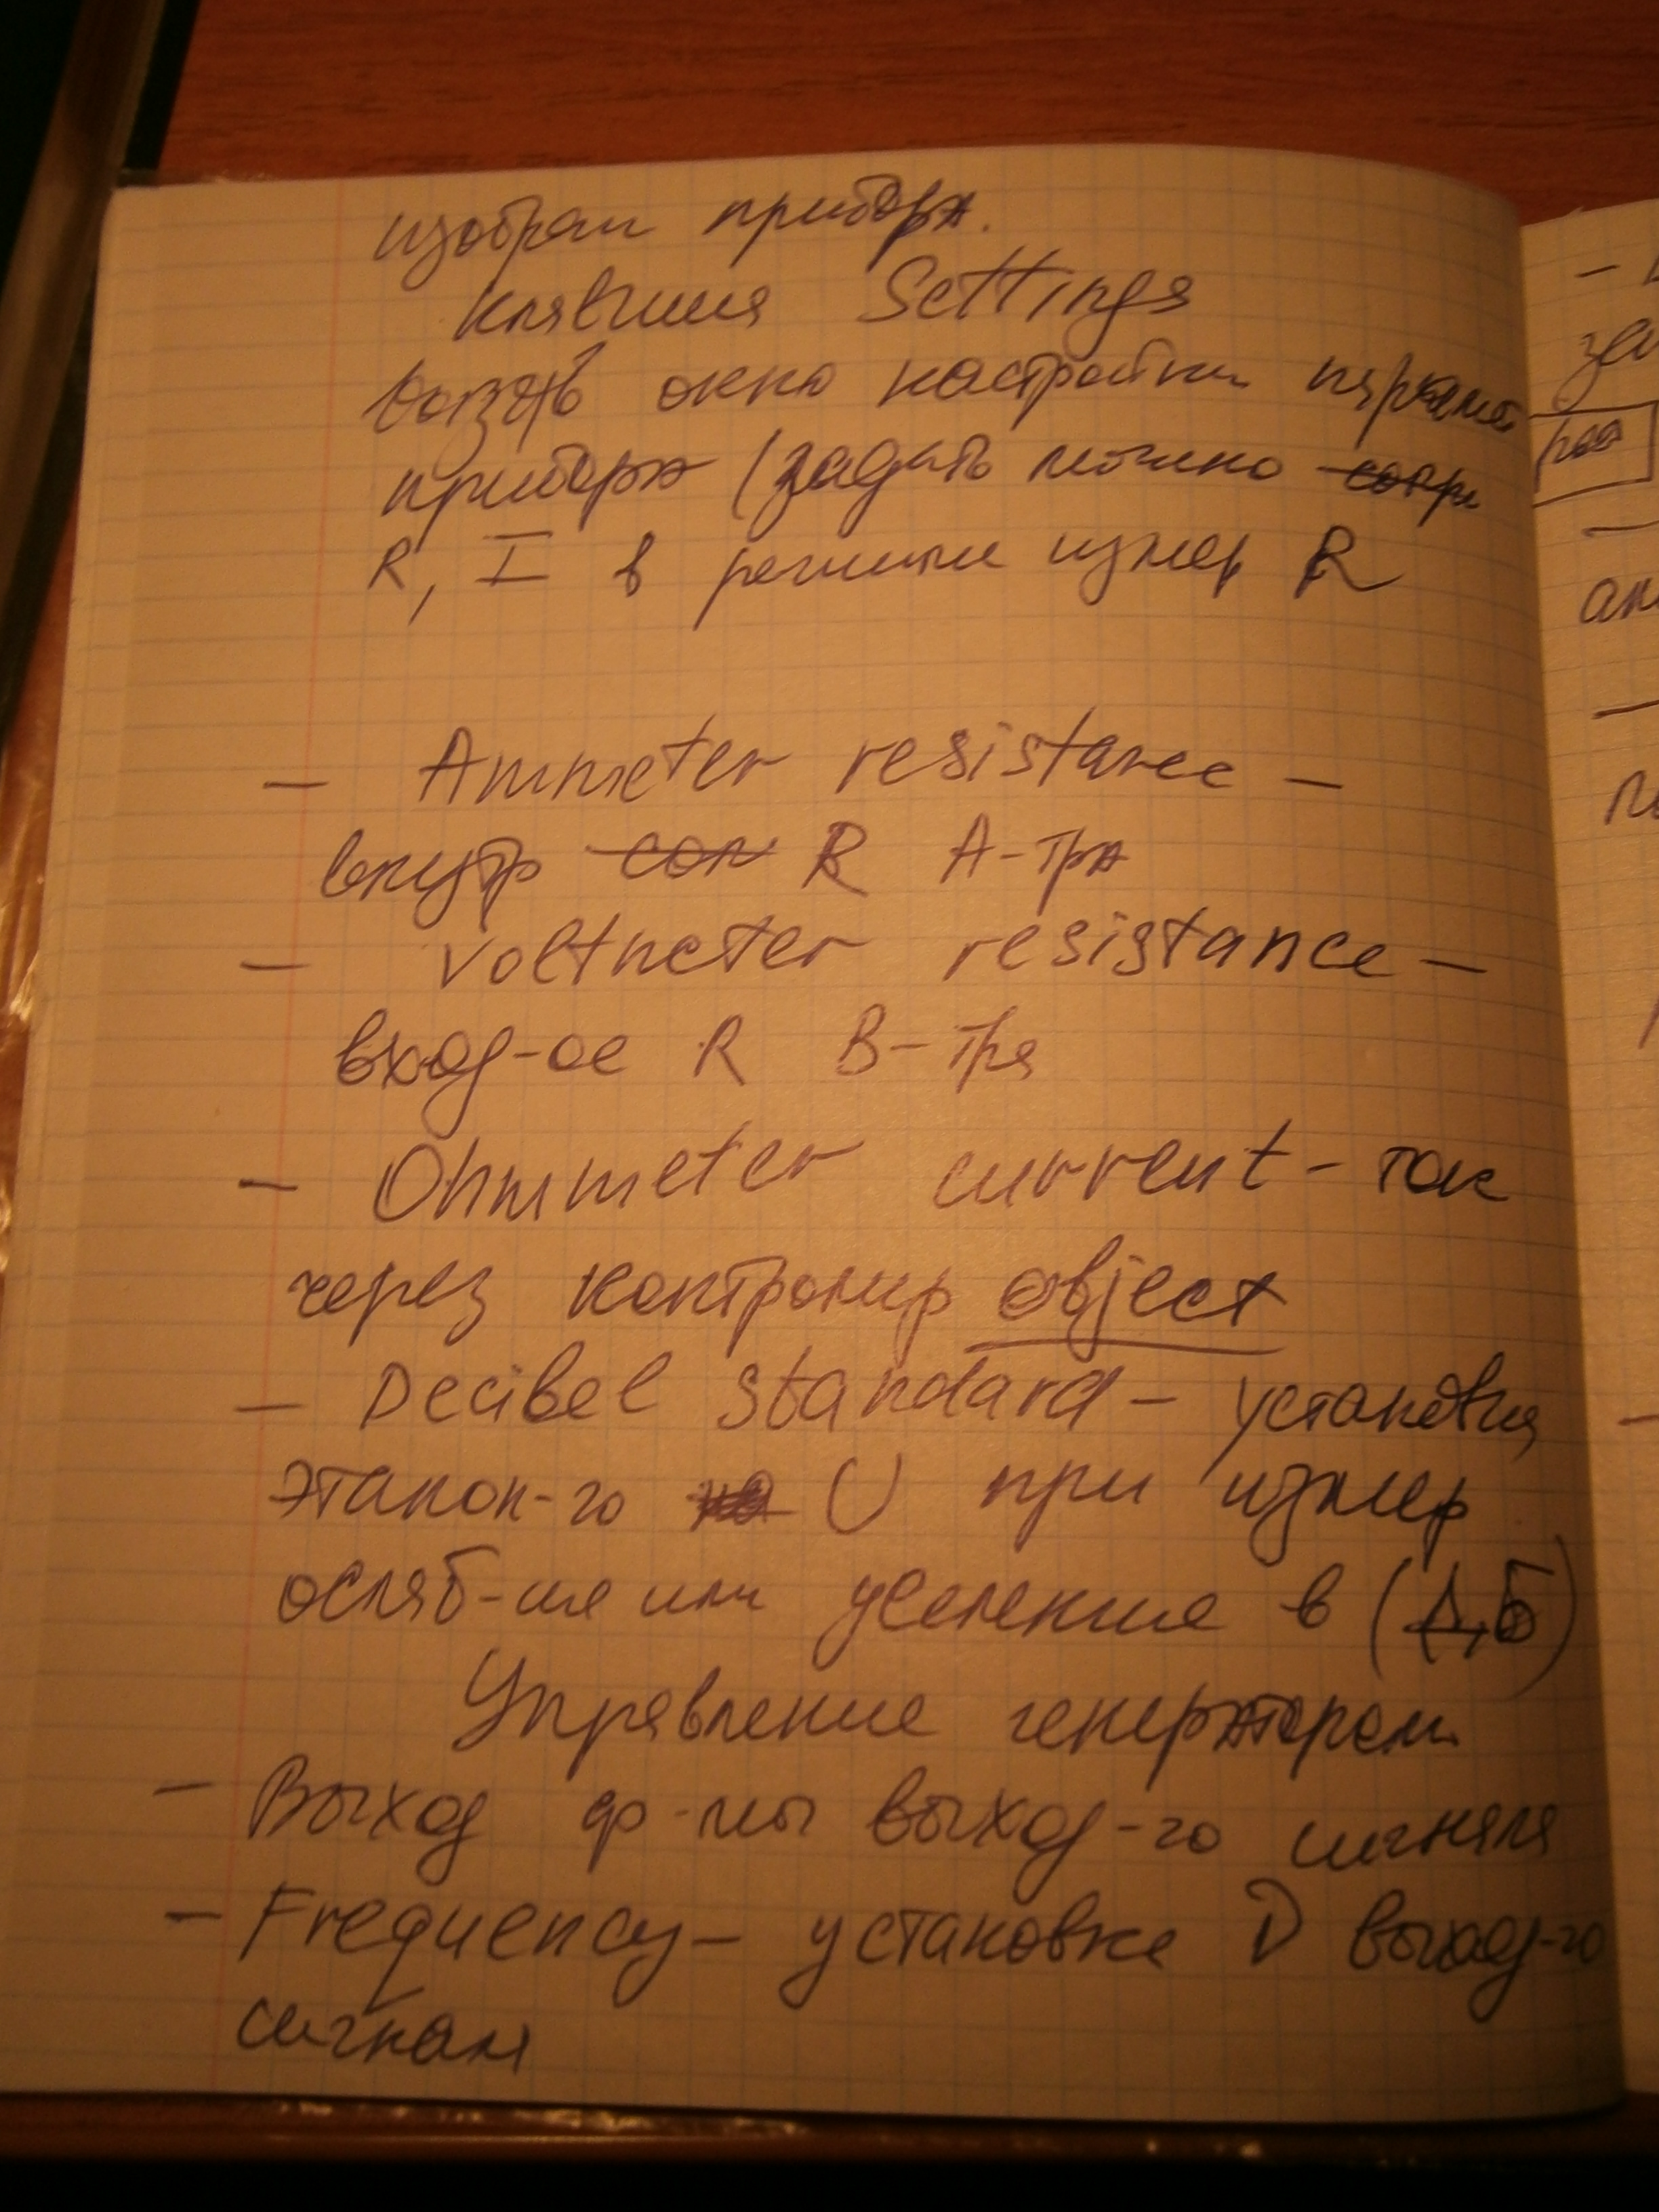 изображ прибора.
Клавиша Settings
вызать окно настройки параме
прибора (задать можно сопр
R, I в режиме измер R
- Ammeter resistance -
внутр соп R А-тра
- Voltmeter resistance -
вход-ое R В-тра
- Ohmmeter current - ток
через контролир object
- Decibel Standard - установка
эталон-го U при измер
ослаб-ия или усиления в (дБ)
Управление генератором
- Выход ф-мы выход-го сигнала
- Frequency - установка ν выход-го
сигнал
- 
за
раа
ан